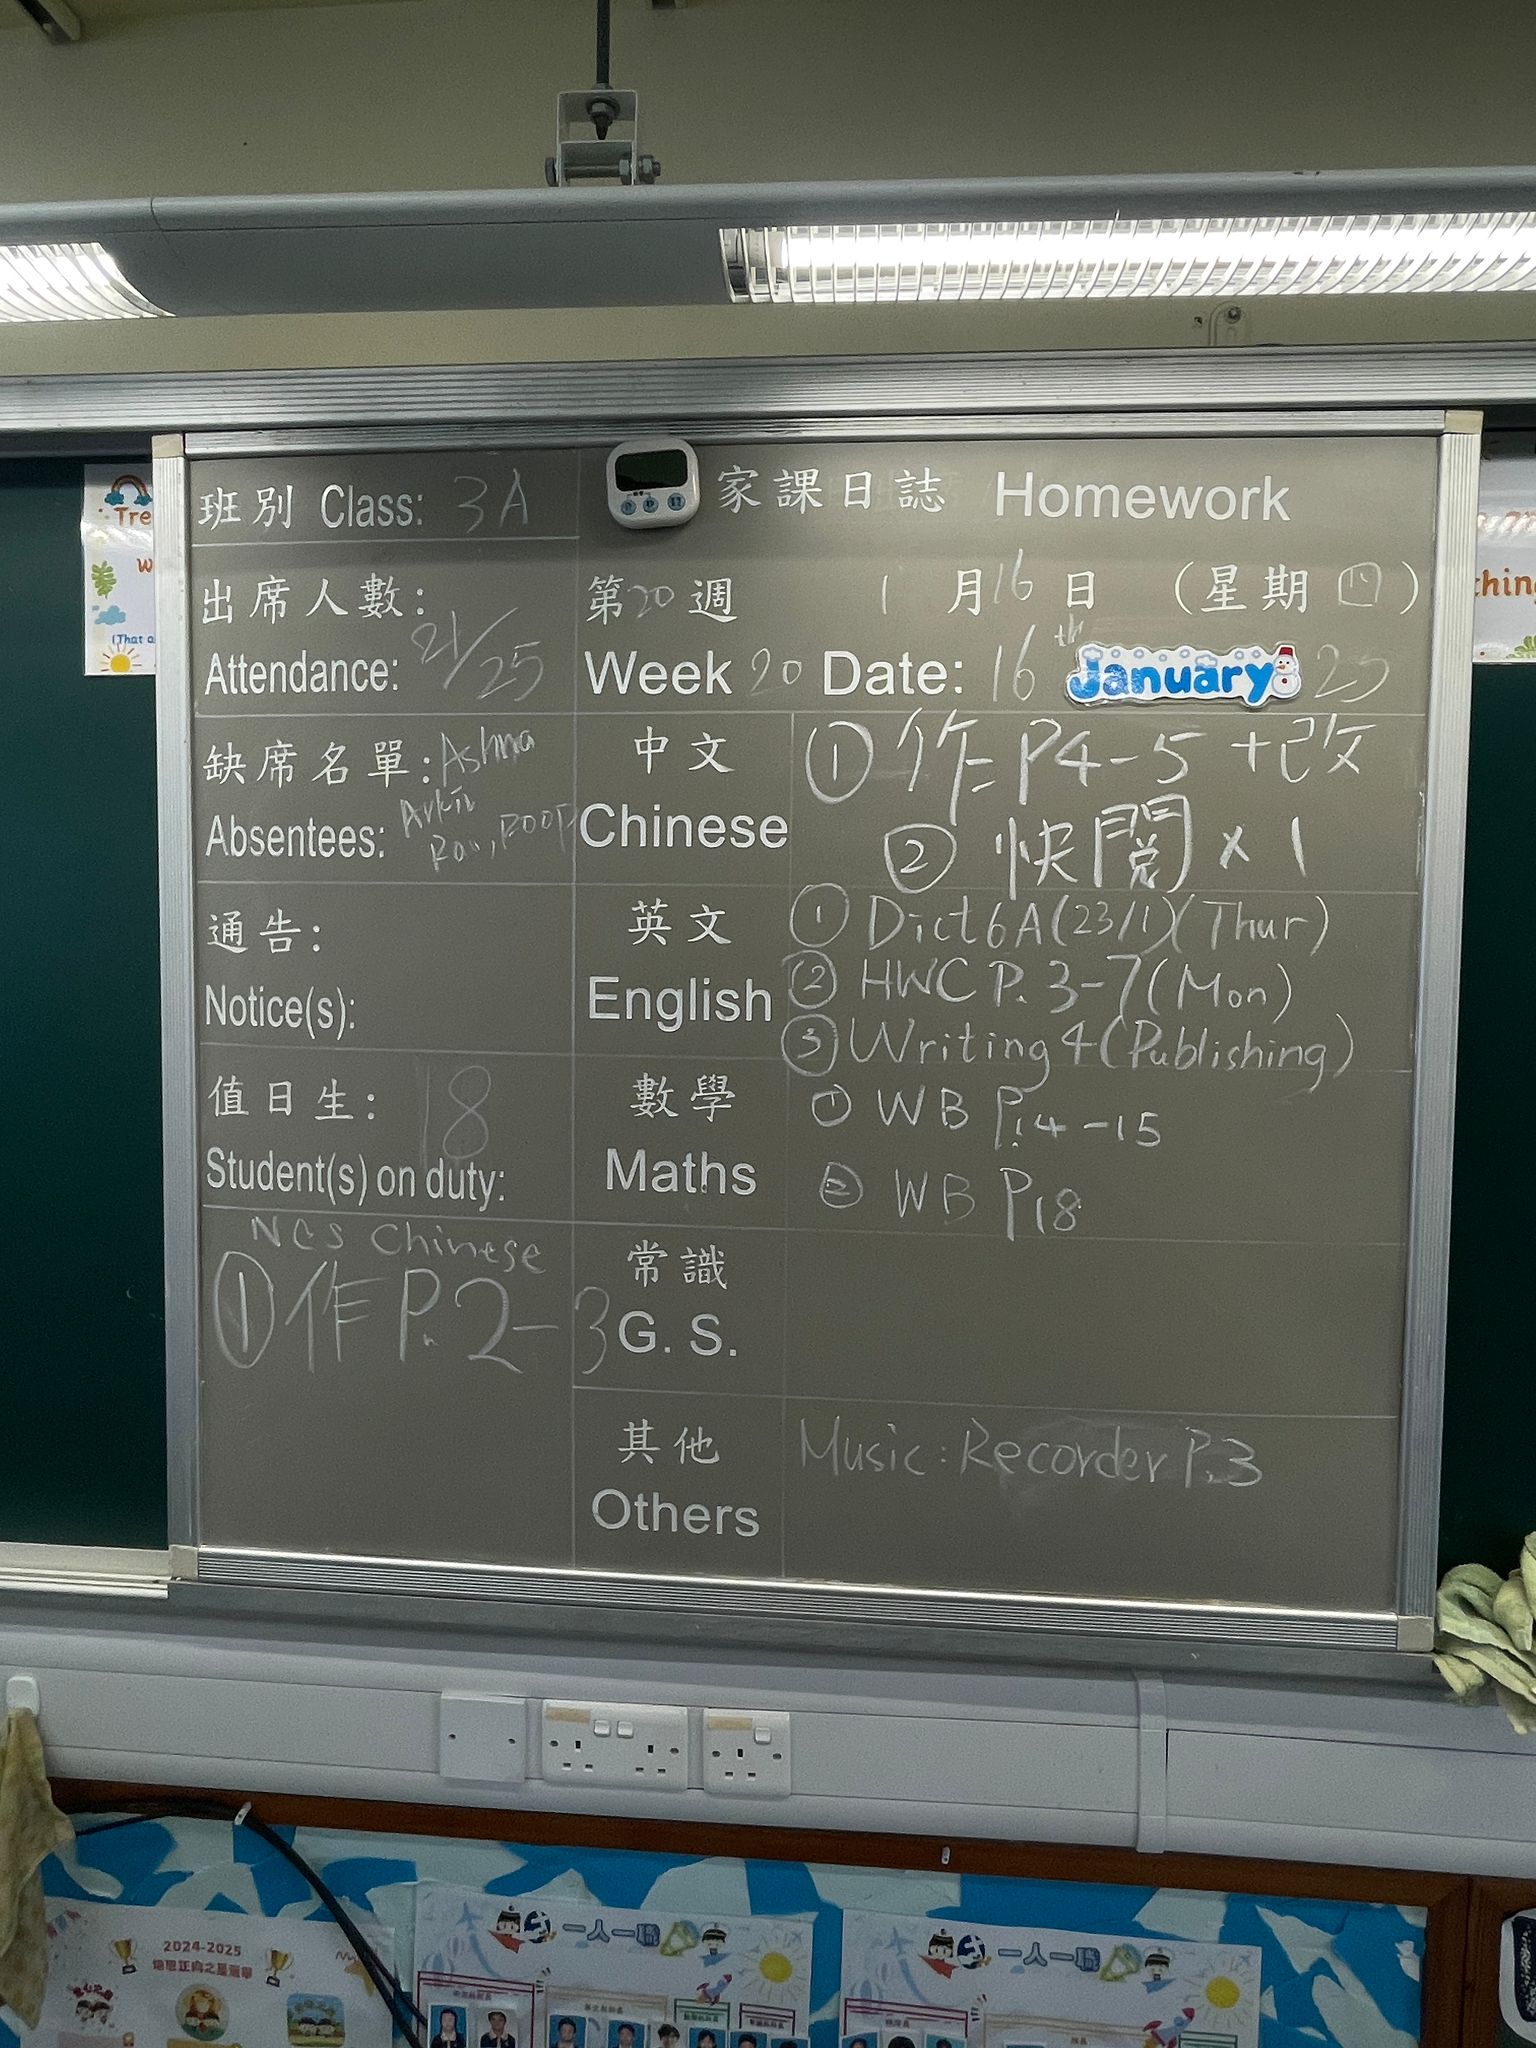 班別 Class: 3A
家課日誌 Homework
出席人數:
Attendance: 21/25
第20週 1月16日 (星期四)
Week 20 Date: 16th January 25
缺席名單: Ashna
Absentees:
中文
Chinese
① 作 P4-5 +改
② 快閱 x 1
通告:
Notice(s):
英文
English
① Dict 6A (23/1) (Thur)
② HWC P. 3-7 (Mon)
③ Writing 4 (Publishing)
值日生: 18
Student(s) on duty:
數學
Maths
① WB P.14-15
② WB P18
NCS Chinese
① 作 P. 2-3
常識
G. S.
其他
Others
Music: Recorder P. 3
2024-2025
一人一職
一人一職